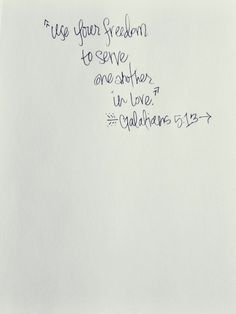 "use your freedom
to serve
one another
in love."
Galatians 5:13